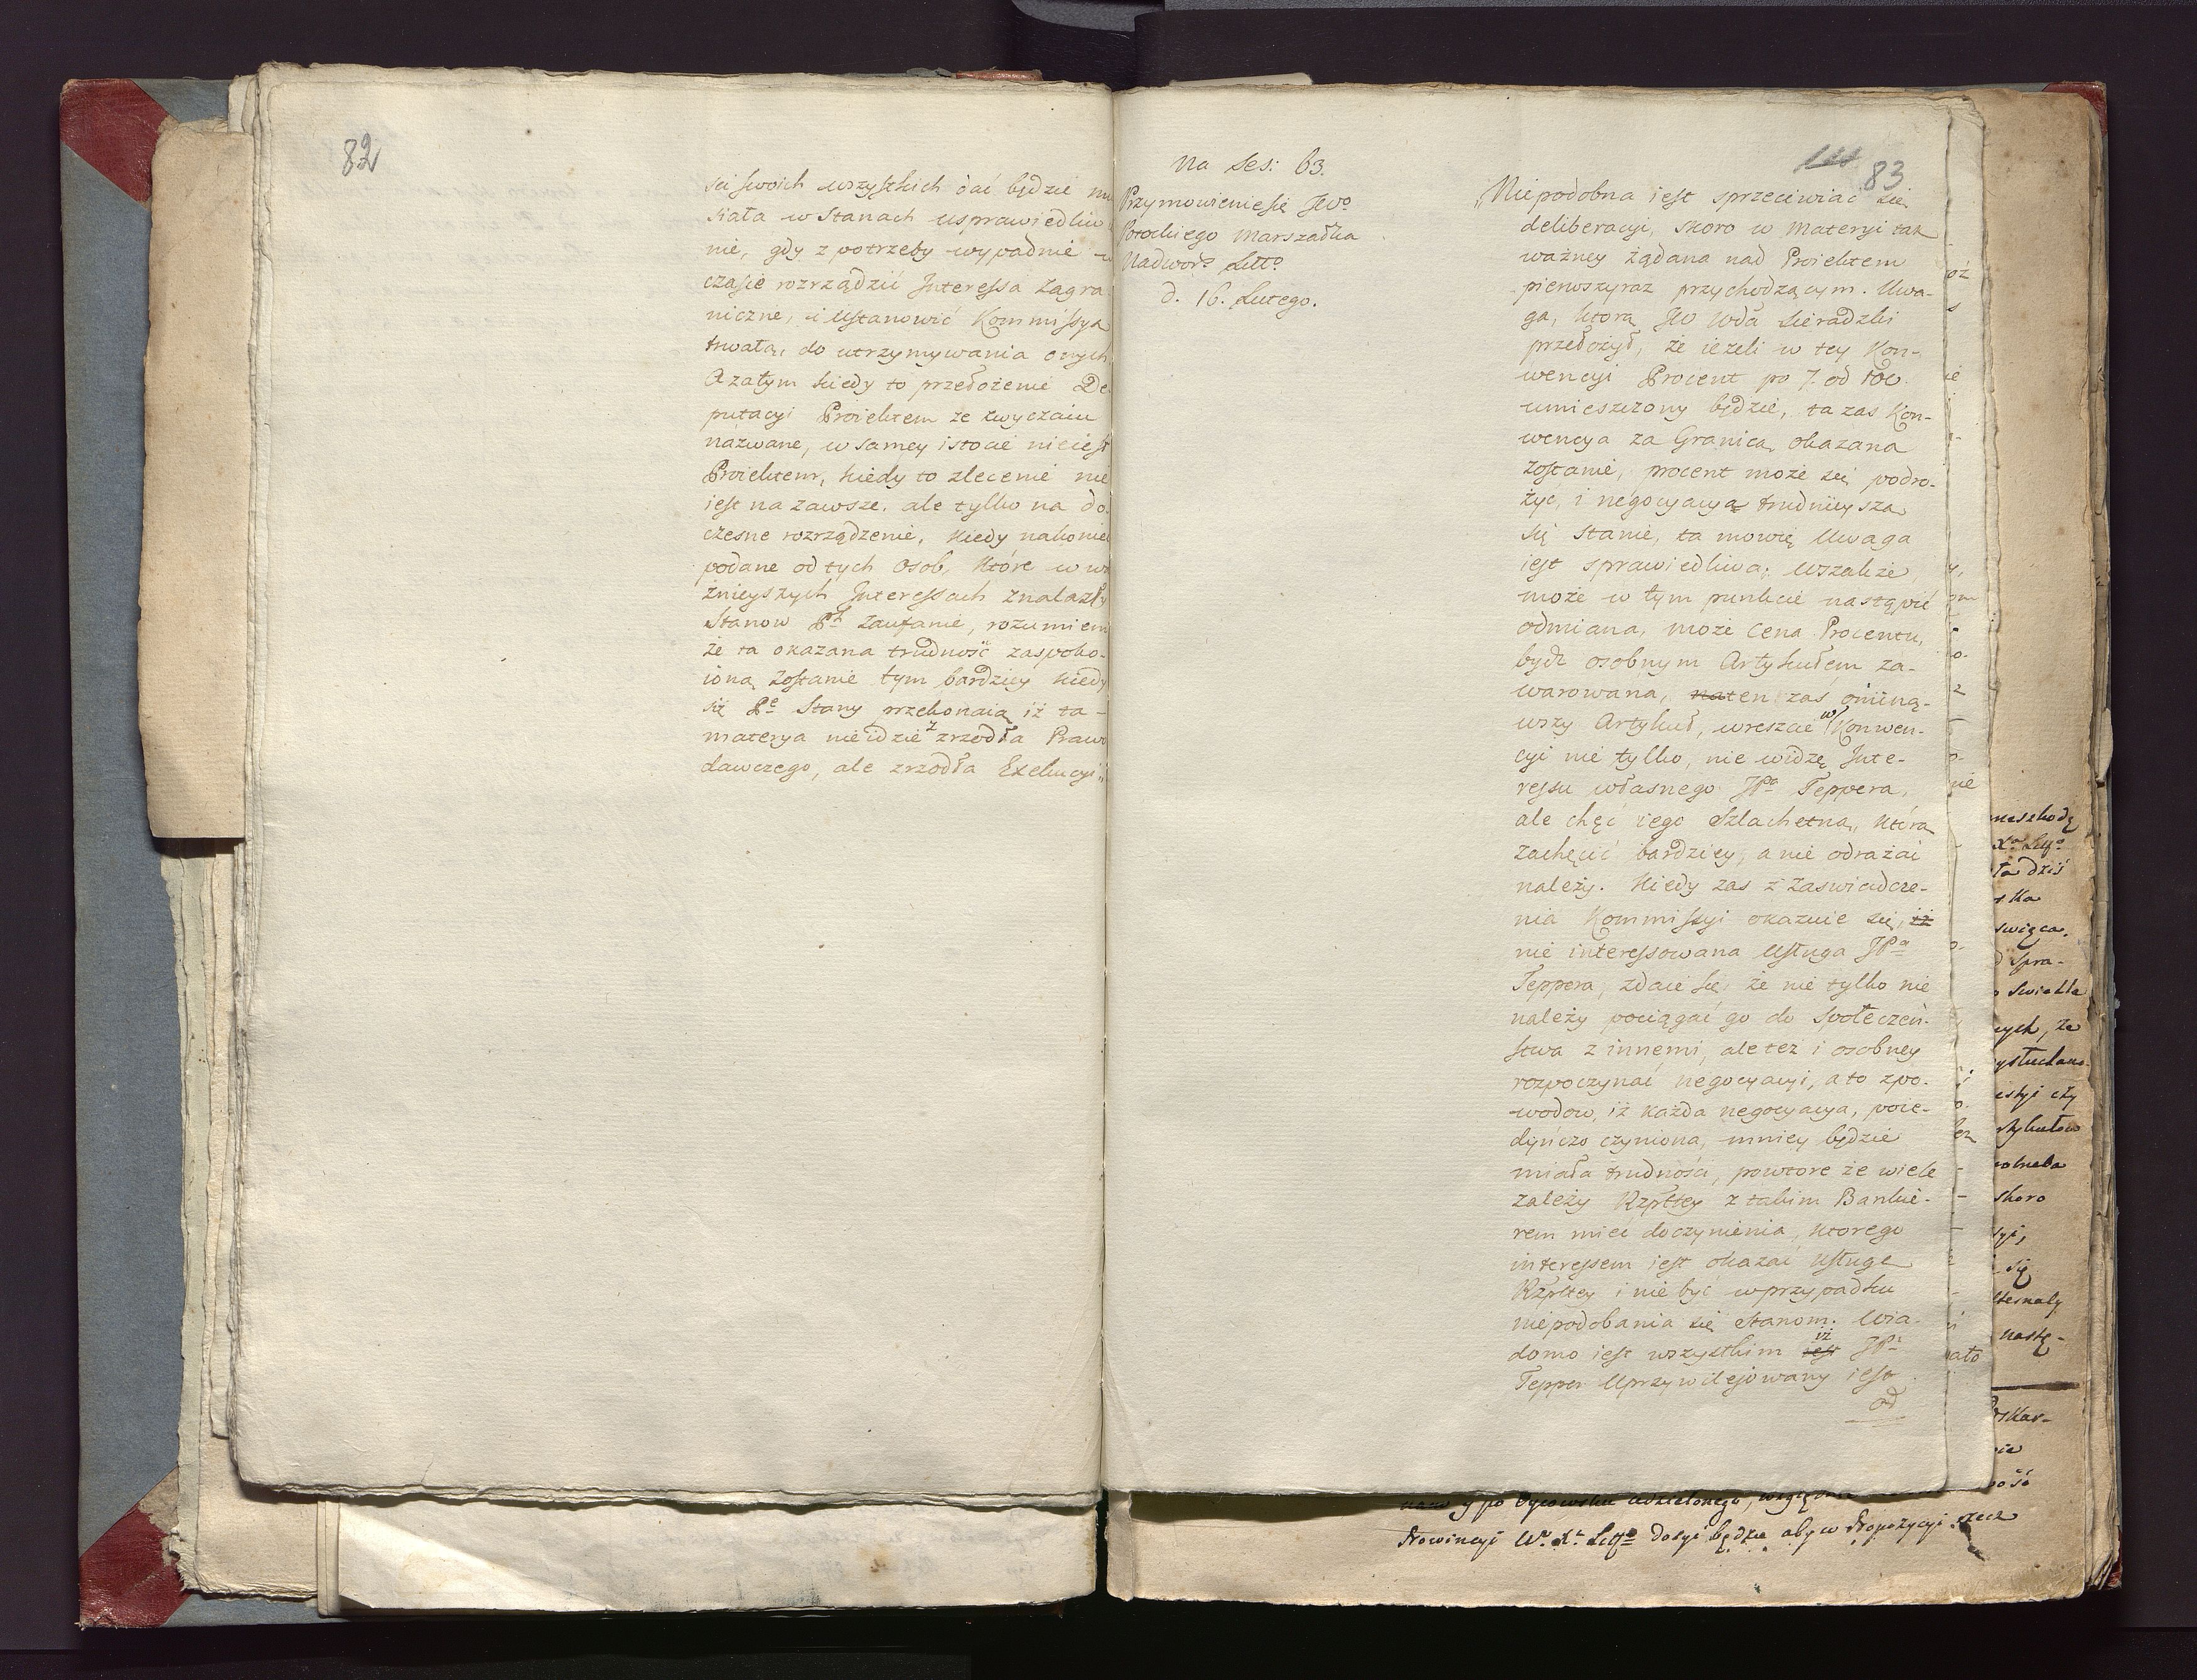 82
sci swoich wszystkich dać będzie mu
siała w Stanach usprawiedliw
nie, gdy z potrzeby wypadnie w
czasie rozrządzić Interessa Zagra
niczne, i Ustanowić Kommissyą
trwałą, do utrzymywania onych.
A zatym kiedy to przełożenie De
putacyi Proiektem ze zwyczaiu
nazwane, w samey istocie nieiest
Proiektem, kiedy to zlecenie nie
iest na zawsze, ale tylko na do
czesne rozrządzenie, kiedy nakoniec
podane od tych Osob, które w wa
żnieyszych Interessach znalazły
Stanow zaufanie, rozumiem
że ta okazana trudność zaspoko-
ioną zostanie tym bardziey kiedy
się Stany przekonaią iż ta-
materya nieidzie z zrzodła Prawo
dawczego, ale zrzodła Exekucyi„
Na Ses: 63.
Przymowienie się JWo
Potockiego Marszałka
Nadwor: Litto
d. 16. Lutego.
83
„Niepodobna iest sprzeciwiać się
deliberacyi, skoro w materyi tak
ważney żądana nad Proiektem
pierwszyraz przychodzącym. Uwa-
ga, którą JW Wda Sieradzki
przełożył, że ieżeli w tey Kon-
wencyi Procent po 7. od 100.
umieszczony będzie, ta zas Kon-
wencya za Granicą okazana
zostanie, procent może się podro-
żyć, i negocyacya trudnieysza
się stanie, ta mowię Uwaga
iest sprawiedliwa; wszakże
może w tym punkcie nastąpić
odmiana, może cena Procentu,
bydź osobnym Artykułem za-
warowana, naten zas ominą-
wszy Artykuł, wreszcie w Konwen-
cyi nie tylko, nie widzę Inte-
ressu własnego JPa Teppera,
ale chęć iego Szlachetną, która
zachęcić bardziey, a nie odrażać
należy. Kiedy zas z Zaswiadcze-
nia Kommissyi okazuie się, iż
nie interessowana Usługa JPa
Teppera, zdaie się że nie tylko nie
należy pociągać go do Społeczeń-
stwa z innemi, ale też i osobney
rozpoczynać negocyacyi, a to z po-
wodow, iż każda negocyacya, poie-
dyńczo czyniona, mniey będzie
miała trudności, powtore że wiele
zależy Rzpltey z takim Bankie-
rem mieć do czynienia, ktorego
interessem iest okazać Usługę
Rzpltey i nie być w przypadku
niepodobania się Stanom. Wia-
domo iest wszystkim iest iż JP.
Tepper Uprzywilejowany iest
od
Prowincyi W. X. Litt dosyć będzie aby w Propozycyi